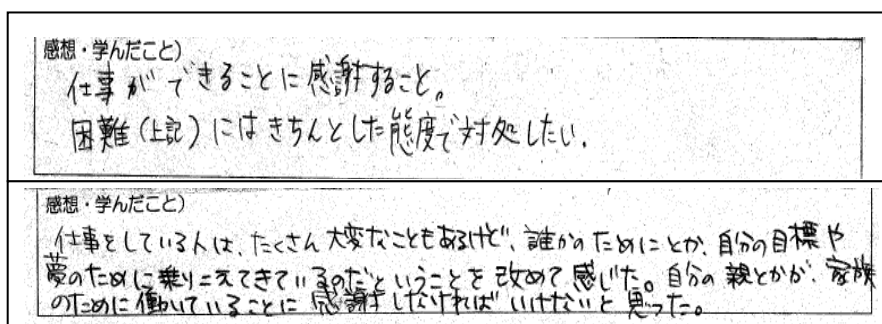 感想・学んだこと)
仕事ができることに感謝すること。
困難(上記)にはきちんとした態度で対処したい.
感想・学んだこと)
仕事をしている人は、たくさん大変なこともあるけど、誰かのためにとか、自分の目標や
夢のために乗りこえてきているのだということを改めて感じた。自分の親とかが、家族
のために働いていることに感謝しなければいけないと思った。